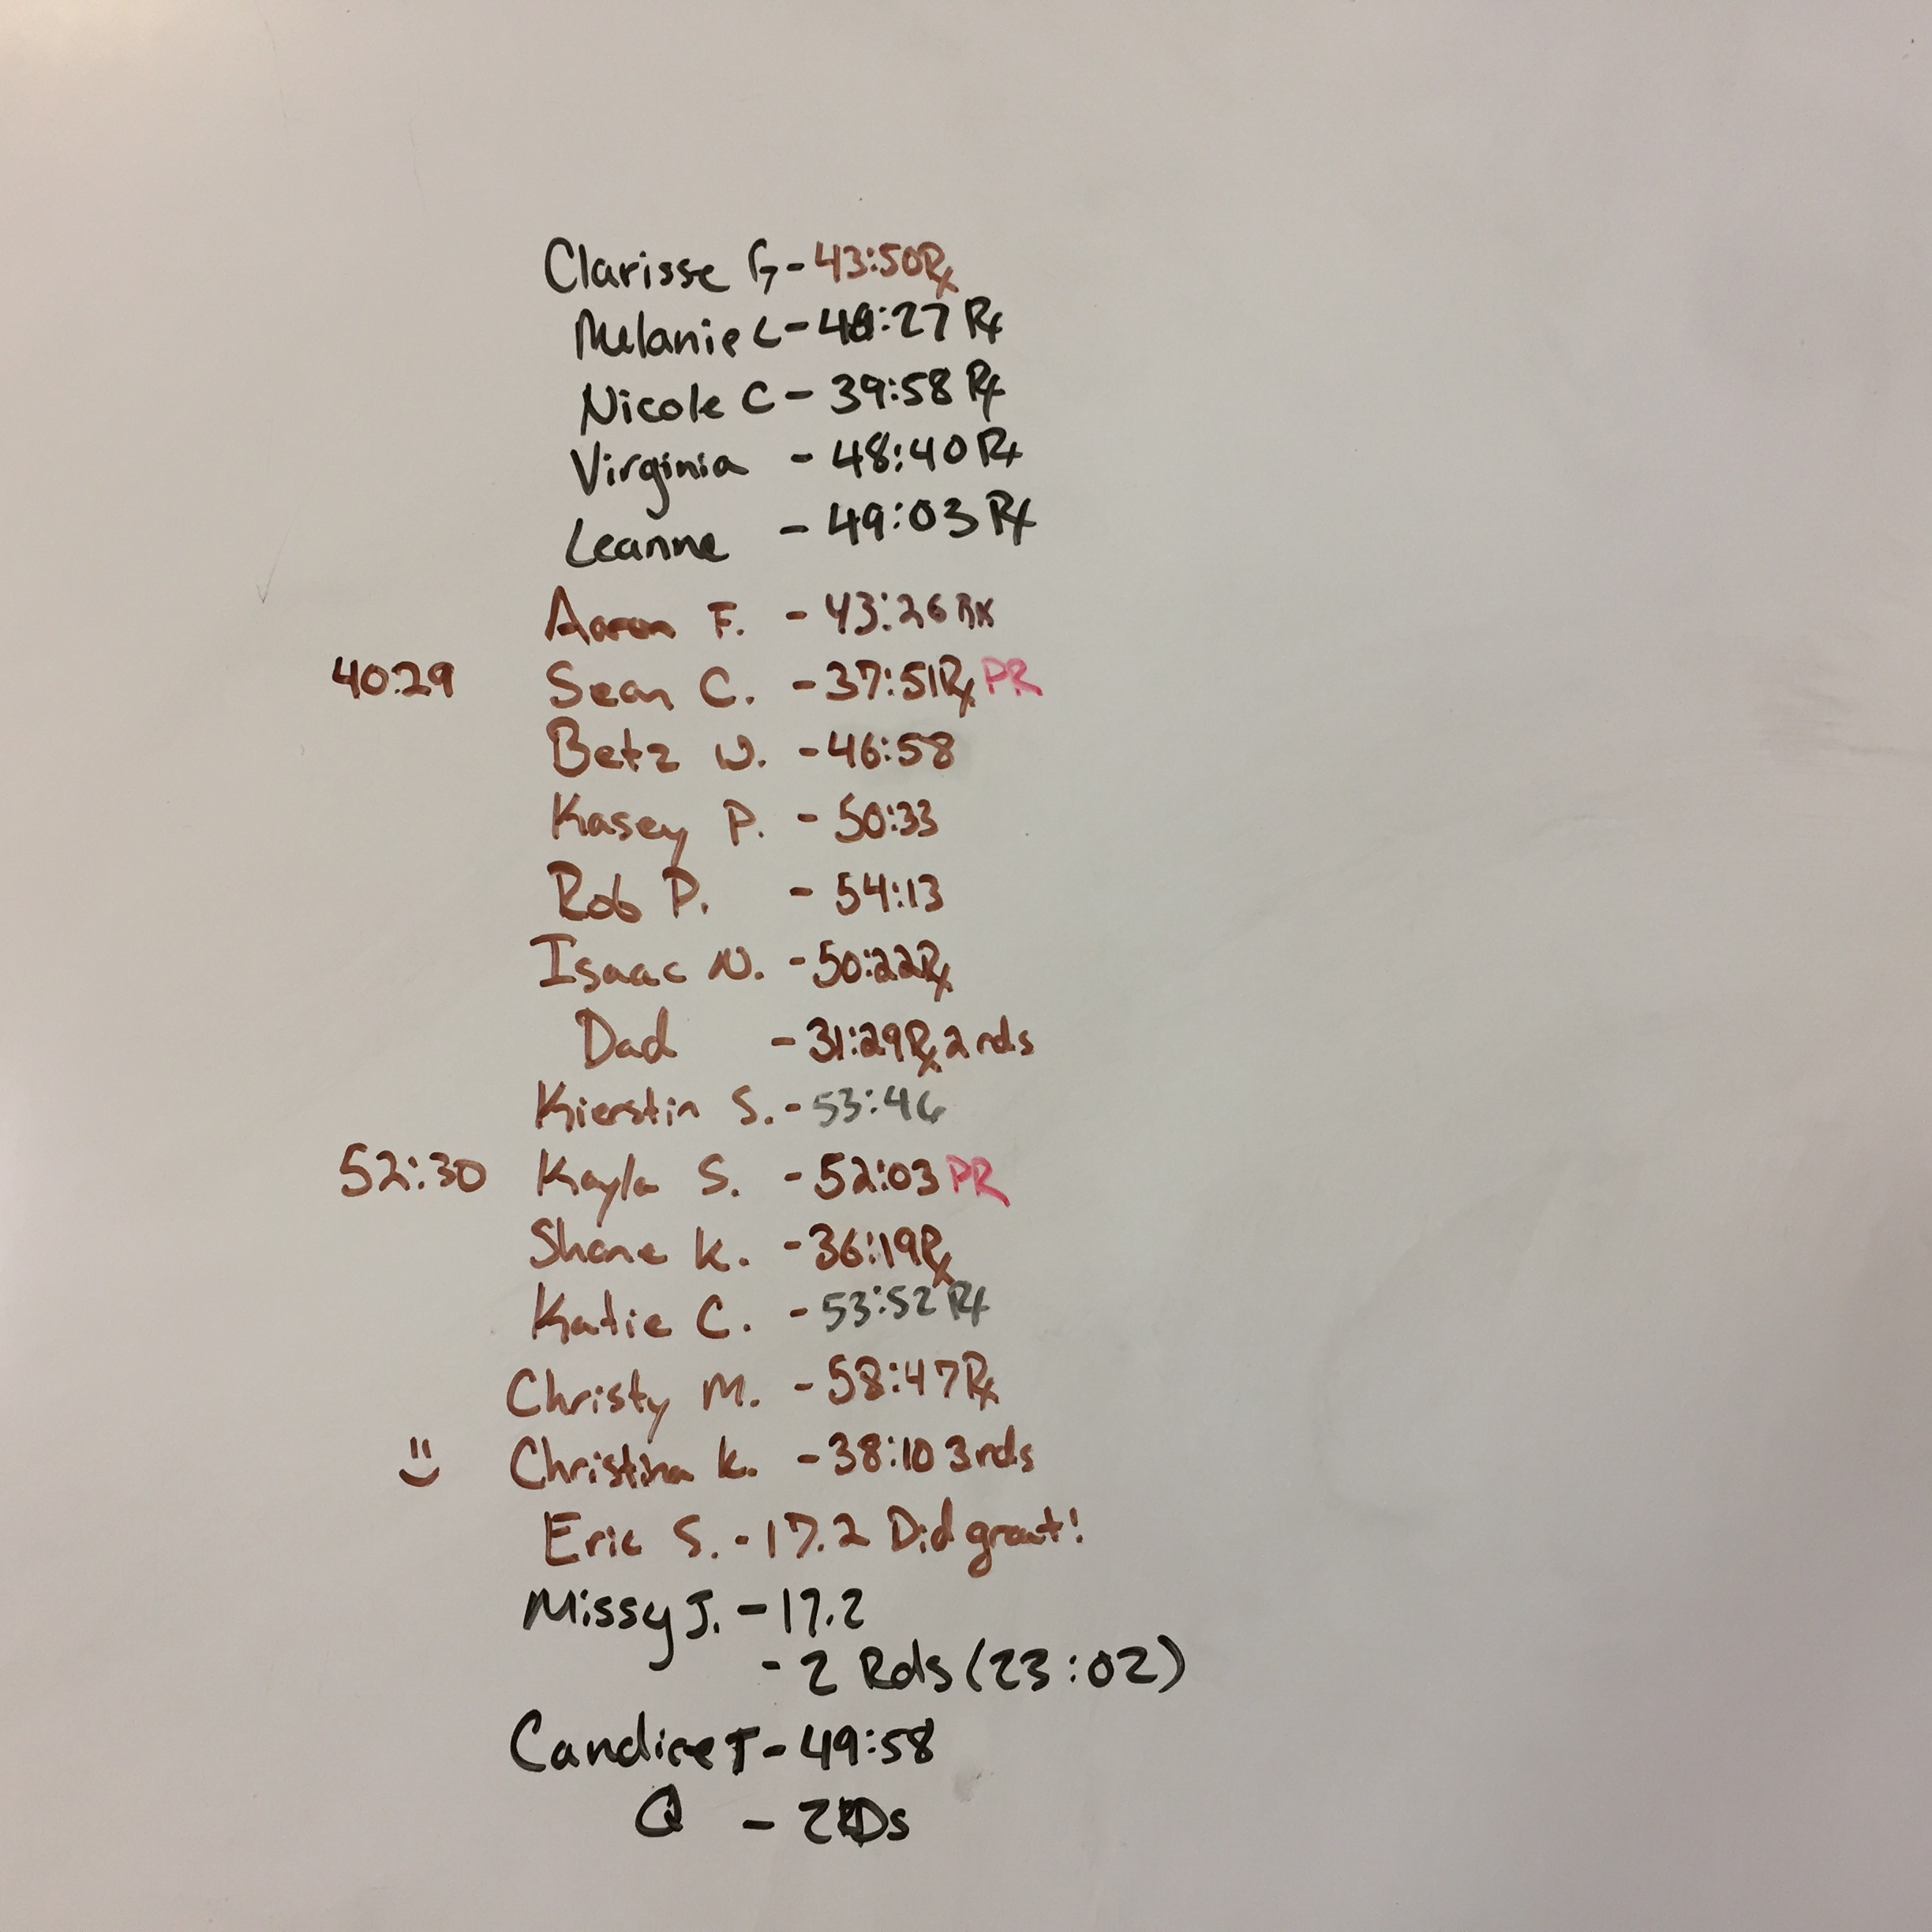 Clarisse G - 43:50 Rx
Melanie L - :27 Rx
Nicole C - 39:58 Rx
Virginia - 48:40 Rx
Leanne - 49:03 Rx
Aaron F. - 43:26 RX
40:29 Sean C. - 37:51 Rx PR
Betz W. - 46:58
Kasey P. - 50:33
Rob P. - 54:13
Isaac N. - 50:22 Rx
Dad - 31:29 Rx 2 rds
Kierstin S. - 53:46
52:30 Kayla S. - 52:03 PR
Shane K. - 36:19 Rx
Katie C. - 53:52 Rx
Christy M. - 58:47 Rx
Christina K. - 38:10 3 rds
Eric S. - 17.2 Did great!
Missy J. - 17.2
- 2 Rds (23:02)
Candice T - 49:58
Q - 2 RDs